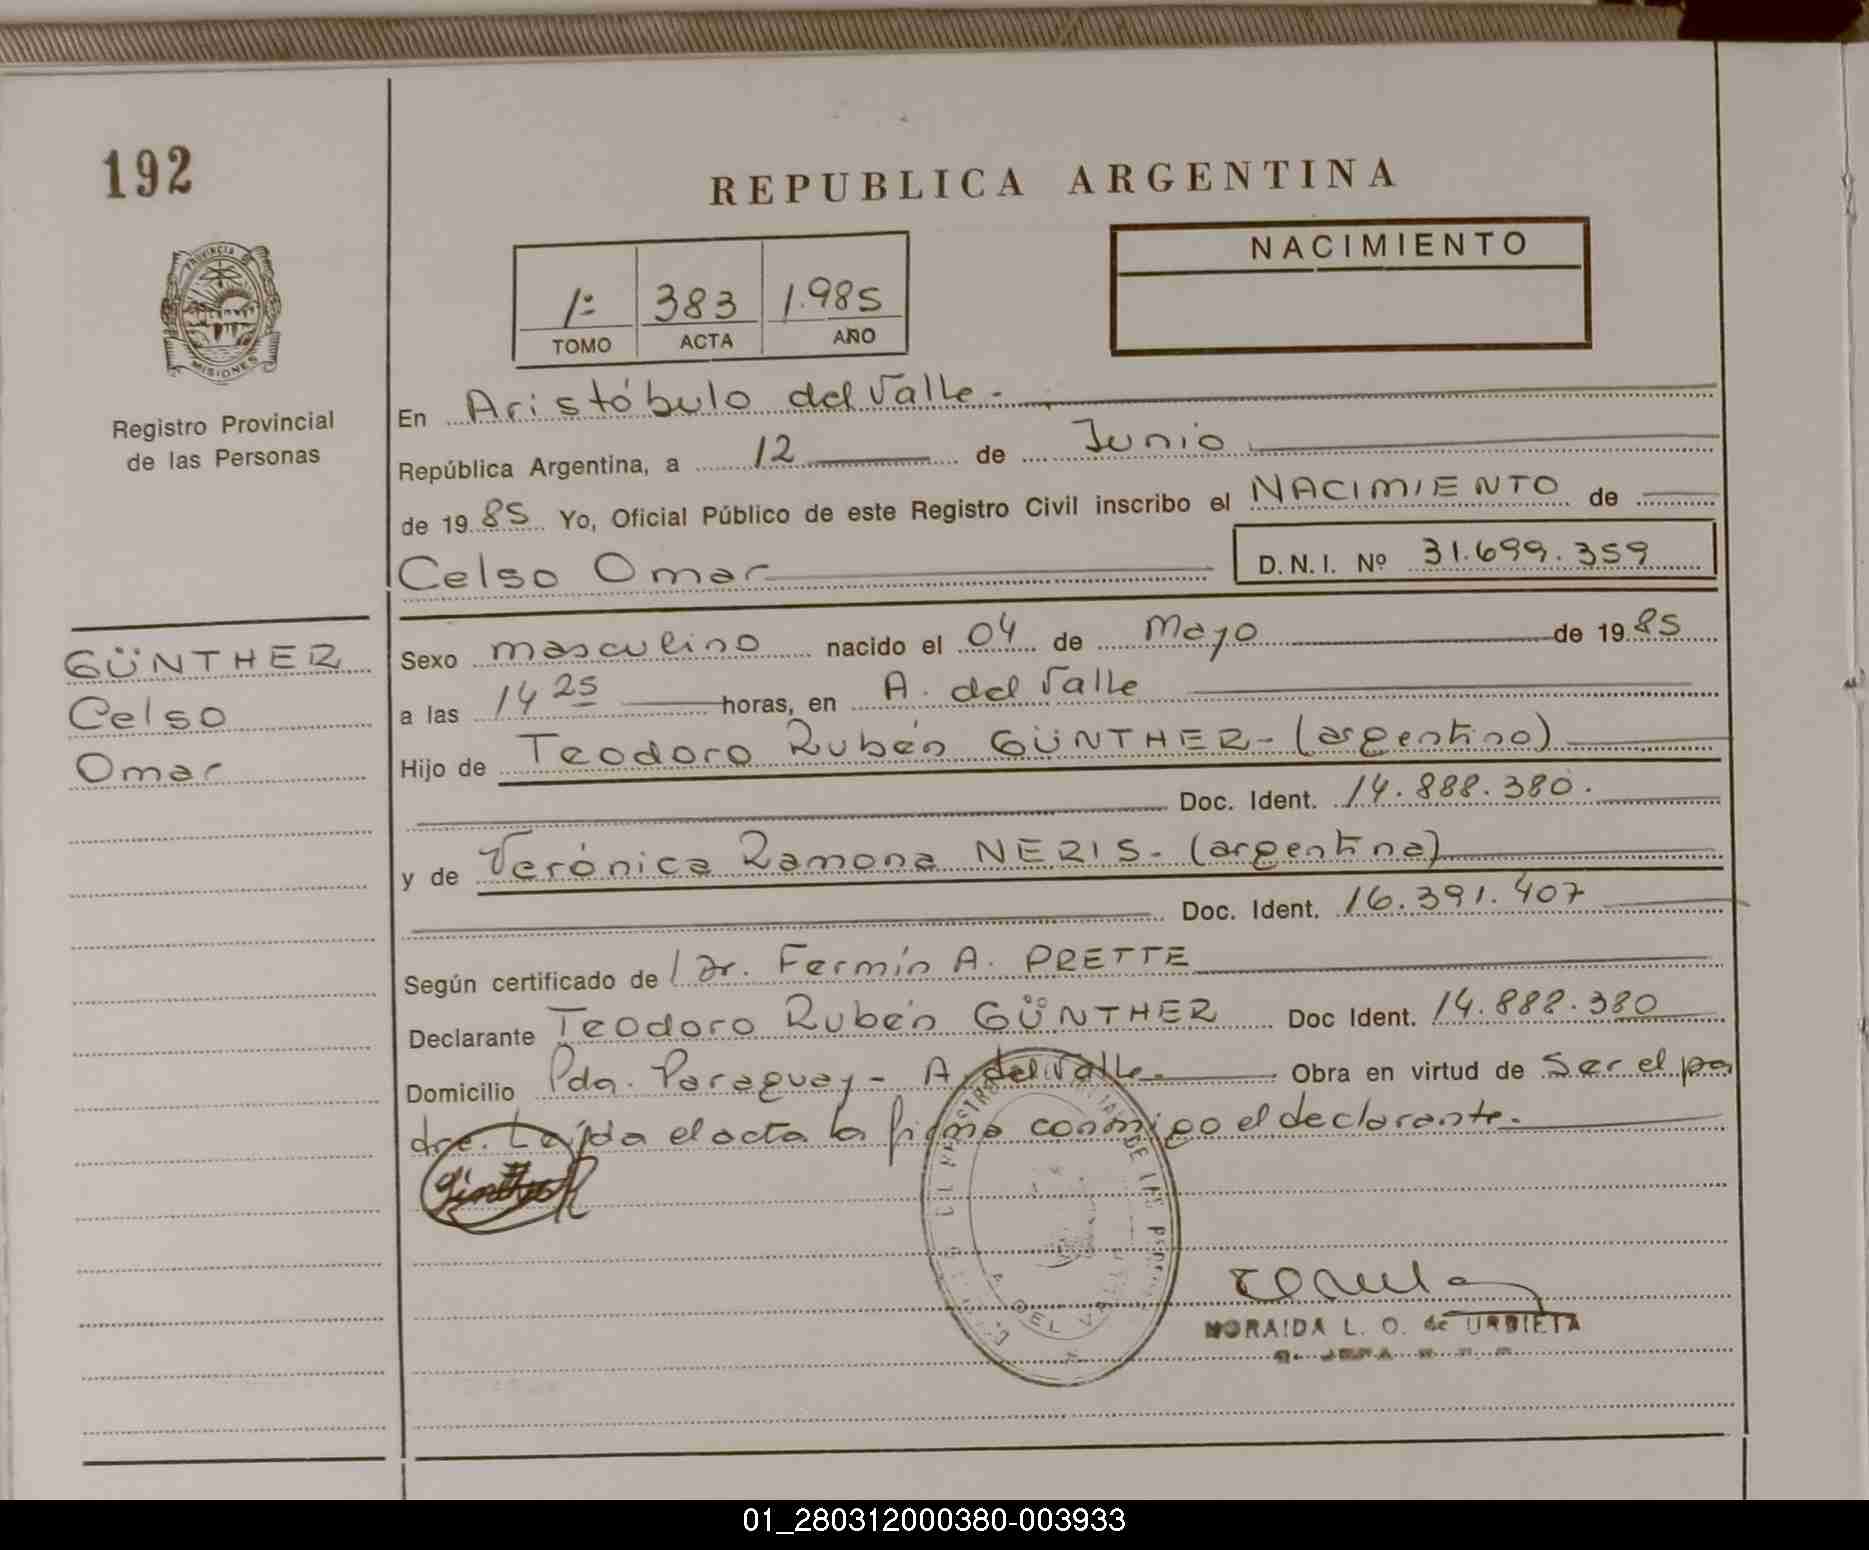 192
REPUBLICA ARGENTINA
NACIMIENTO
1º 383 1.985
TOMO ACTA AÑO
PROVINCIA DE
MISIONES
Registro Provincial
de las Personas
En Aristóbulo del Valle.-
República Argentina, a 12 de Junio
de 1985 Yo, Oficial Público de este Registro Civil inscribo el NACIMIENTO de
Celso Omar D.N.I. Nº 31.699.359
GÜNTHER
Celso
Omar
Sexo masculino nacido el 04 de Mayo de 1985
a las 14 25 horas, en A. del Valle
Hijo de Teodoro Rubén GÜNTHER- (argentino)
Doc. Ident. 14.888.380.
y de Verónica Ramona NERIS- (argentina)
Doc. Ident. 16.391.407
Según certificado de Dr. Fermín A. PRETTE
Declarante Teodoro Rubén GÜNTHER Doc Ident. 14.888.380
Domicilio Pda. Paraguay- A. del Valle.- Obra en virtud de Ser el pa
dre. Leída el acta la firma conmigo el declarante.-
A. DEL VALLE
NORAIDA L. O. de URBIETA
01_280312000380-003933